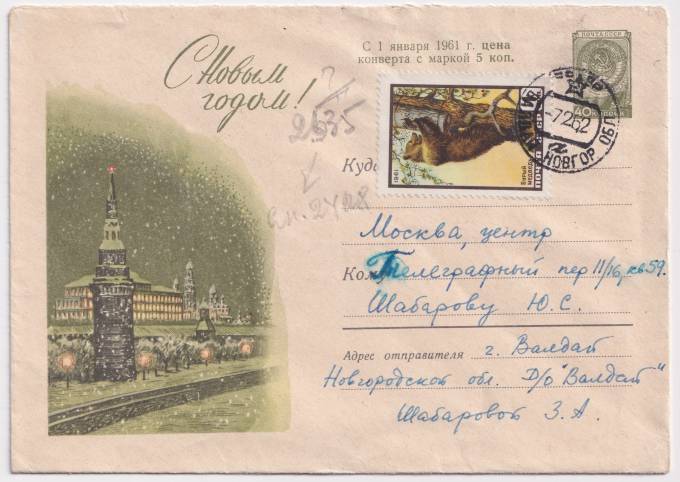 С 1 января 1961 г. цена
конверта с маркой 5 коп.
ПОЧТА СССР
40 КОПЕЕК
С Новым
годом!
?
2635
см. 2408
1961
Бурый
медведь
ПОЧТА СССР
-7262
НОВГОР. ОБЛ.
Куда
Москва, центр
Кому
Телеграфный пер 11/16, кв 59.
Шабарову Ю. С.
Адрес отправителя
г. Валдай
Новгородской обл. Д/О "Валдай"
Шабаровой З. А.